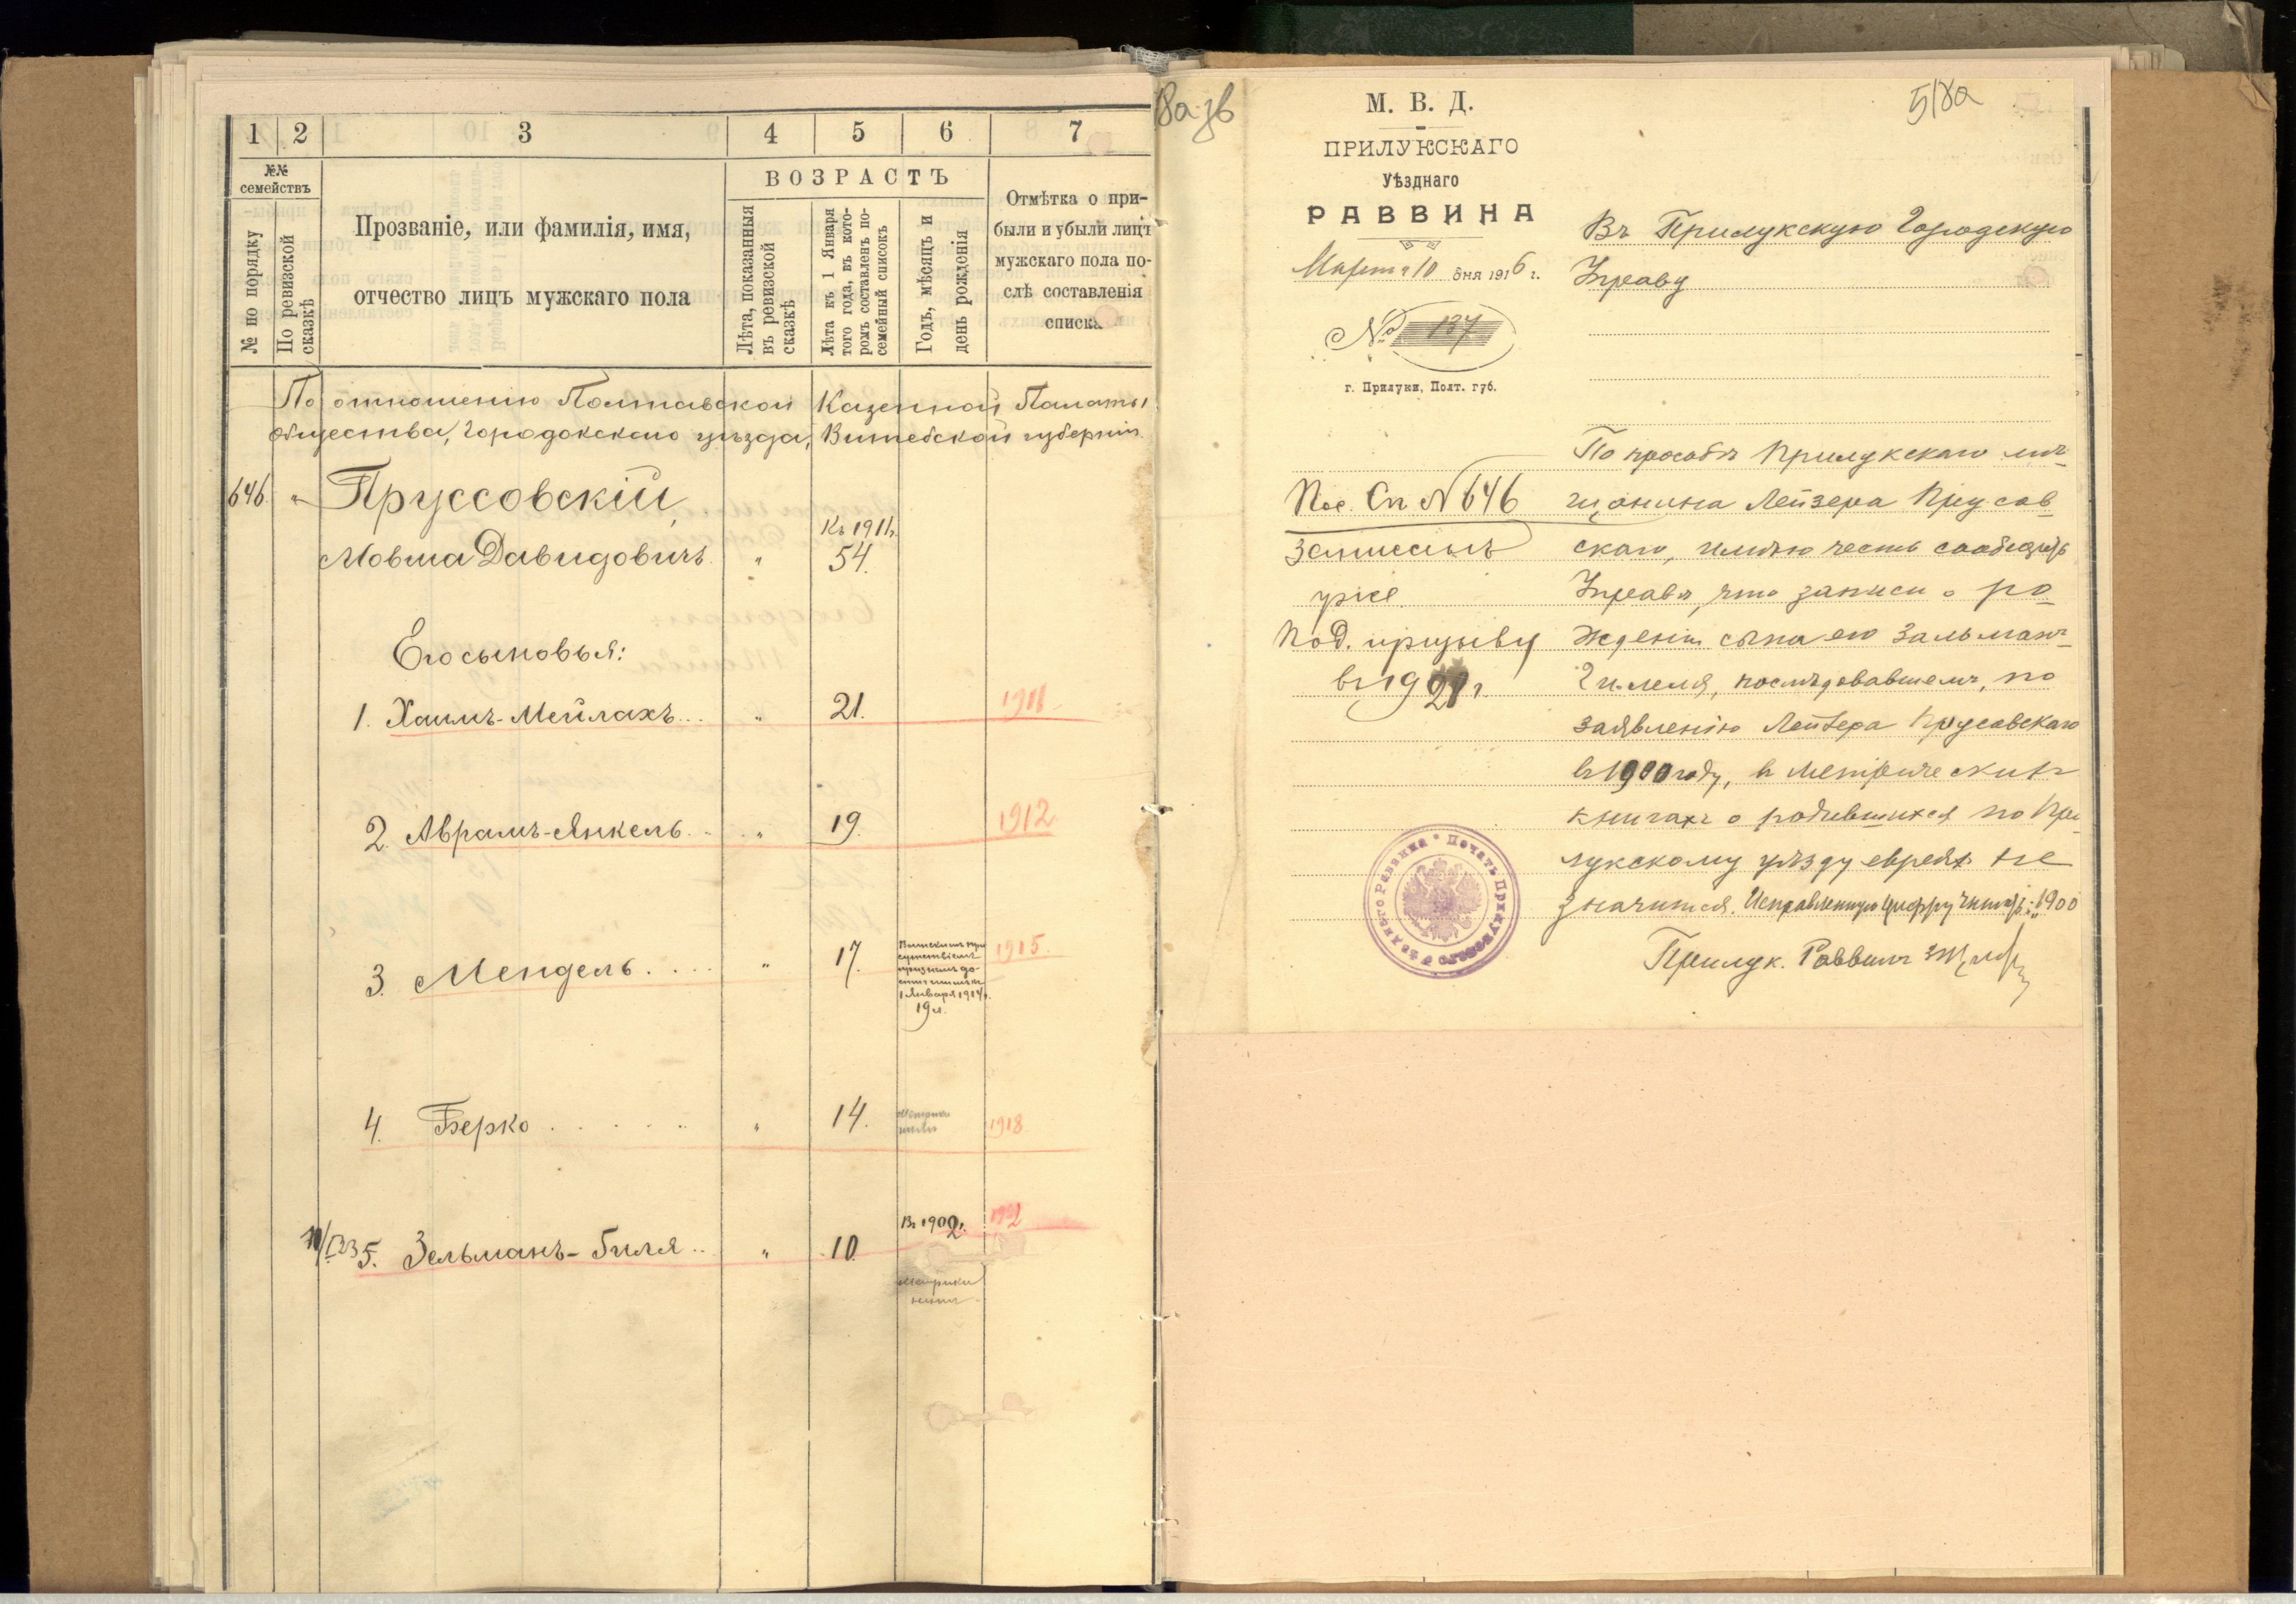 1 2 3 4 5 6 7
№№
семействъ
№ по порядку
По ревизской
сказкѣ
Прозваніе, или фамилія, имя,
отчество лицъ мужскаго пола
ВОЗРАСТЪ
Лѣта, показанныя
въ ревизской
сказкѣ
Лѣта къ 1 Января
того года, въ кото-
ромъ составленъ по-
семейный списокъ
Годъ, мѣсяцъ и
день рожденія
Отмѣтка о при-
были и убыли лицъ
мужскаго пола по-
слѣ составленія
списка
По отношенію Полтавской Казенной Палаты
общества, Городокскаго уѣзда, Витебской губерніи
646. " Пруссовскій
Къ 1911г.
Мовша Давидовичъ " 54.
Его сыновья:
1. Хаимъ-Мейлахъ... " 21. 1911
2. Аврамъ-Янкель.. " 19. 1912
3. Мендель.... " 17. 1915.
1 Января 1914г.
19 л.
4. Берко...... " 14. 1918
Въ 1902г.
5. Зельманъ-Гиля.. " 10.
Метрики
518а
М. В. Д.
ПРИЛУКСКАГО
Уѣзднаго
РАВВИНА
Марта 10 дня 1916 г.
№ 137
г. Прилуки, Полт. губ.
Въ Прилукскую Городскую
Управу
Пос. Сп. № 646
Записанъ
уже.
Под. призыву
въ 1921 г.
По просьбѣ Прилукскаго мѣ-
щанина Лейзера Прусов-
скаго, имѣю честь сообщить
Управѣ, что записи о ро-
жденіи сына его Зальманъ-
Гилеля, послѣдовавшемъ, по
заявленію Лейзера Прусовскаго
въ 1900 году, въ метрическихъ
книгахъ о родившихся по При-
лукскому уѣзду евреяхъ не
значится. Исправленную цифру читать: "1900
Прилук. Раввинъ
Печать Прилукского Уѣздного Раввина